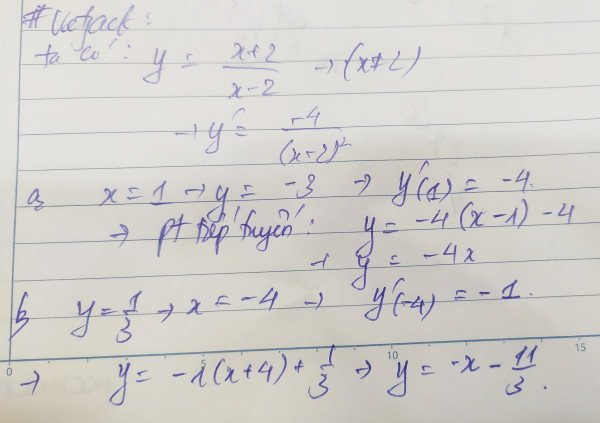 ta có: y = \frac{x+2}{x-2} → (x≠2)
→ y' = \frac{-4}{(x-2)^2}
a, x = 1 → y = -3 → y'(1) = -4.
→ pt tiếp tuyến: y = -4(x-1) - 4
→ y = -4x
b, y = \frac{1}{3} → x = -4 → y'(-4) = -1.
→ y = -1(x+4) + \frac{1}{3} → y = -x - \frac{11}{3}.
0 5 10 15